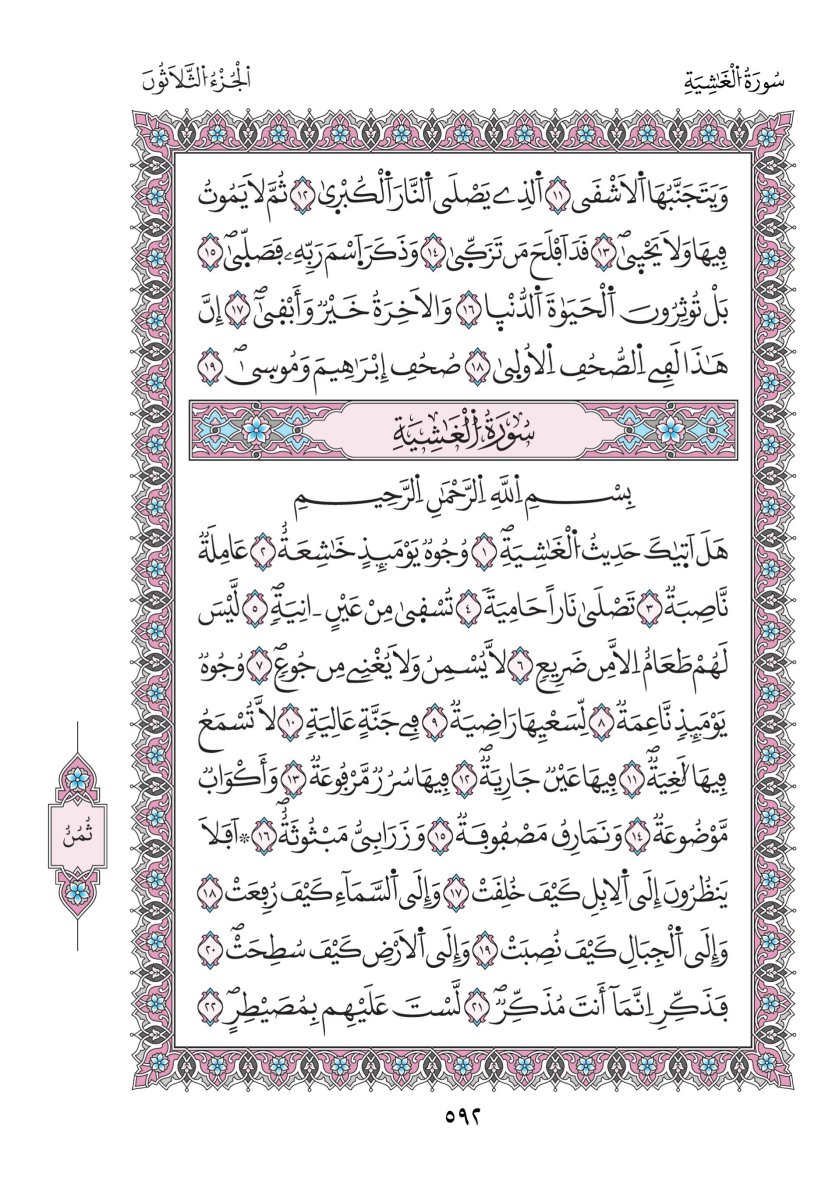 سُورَةُ اُ۬لْغَٰشِيَةِ
اَ۬لْجُزْءُ اُ۬لثَّلَاثُونَ
وَيَتَجَنَّبُهَا اَ۬لَاشْقَي ١١ اَ۬لذِے يَصْلَي اَ۬لنَّارَ اَ۬لْكُبْر۪ىٰ ١٢ ثُمَّ لَا يَمُوتُ
فِيهَا وَلَا يَحْي۪ىٰۖ ١٣ قَدَ اَفْلَحَ مَن تَزَكّ۪ىٰ ١٤ وَذَكَرَ اَ۪سْمَ رَبِّهِۦ فَصَلّ۪ىٰۖ ١٥
بَلْ تُوثِرُونَ اَ۬لْحَيَوٰةَ اَ۬لدُّنْي۪ا ١٦ وَالَاخِرَةُ خَيْرٞ وَأَبْق۪ىٰٓۖ ١٧ إِنَّ
هَٰذَا لَفِے اِ۬لصُّحُفِ اِ۬لُاول۪ىٰ ١٨ صُحُفِ إِبْرَٰهِيمَ وَمُوس۪ىٰۖ ١٩
سُورَةُ اُ۬لْغَٰشِيَةِ
بِسْمِ اِ۬للَّهِ اِ۬لرَّحْمَٰنِ اِ۬لرَّحِيمِ
هَلَ اَت۪يٰكَ حَدِيثُ اُ۬لْغَٰشِيَةِۖ ١ وُجُوهٞ يَوْمَئِذٍ خَٰشِعَةٌ ٢ عَامِلَةٞ
نَّاصِبَةٞ ٣ تَصْلَىٰ نَاراً حَامِيَةٗ ٤ تُسْق۪ىٰ مِنْ عَيْنٍ ـ انِيَةٖۖ ٥ لَّيْسَ
لَهُمْ طَعَامٌ اِلَّا مِن ضَرِيعٖ ٦ لَّا يُسْمِنُ وَلَا يُغْنِے مِن جُوعٖۖ ٧ وُجُوهٞ
يَوْمَئِذٖ نَّاعِمَةٞ ٨ لِّسَعْيِهَا رَاضِيَةٞ ٩ فِے جَنَّةٍ عَالِيَةٖ ١٠ لَّا تُسْمَعُ
فِيهَا لَٰغِيَةٞۖ ١١ فِيهَا عَيْنٞ جَارِيَةٞۖ ١٢ فِيهَا سُرُرٞ مَّرْفُوعَةٞ ١٣ وَأَكْوَابٞ
مَّوْضُوعَةٞ ١٤ وَنَمَارِقُ مَصْفُوفَةٞ ١٥ وَزَرَابِيُّ مَبْثُوثَةٌۖ ١٦ * اَفَلَا
يَنظُرُونَ إِلَي اَ۬لِابِلِ كَيْفَ خُلِقَتْ ١٧ وَإِلَي اَ۬لسَّمَآءِ كَيْفَ رُفِعَتْ ١٨
وَإِلَي اَ۬لْجِبَالِ كَيْفَ نُصِبَتْ ١٩ وَإِلَي اَ۬لَارْضِ كَيْفَ سُطِحَتْۖ ٢٠
فَذَكِّرِ اِنَّمَآ أَنتَ مُذَكِّرٞۖ ٢١ لَّسْتَ عَلَيْهِم بِمُصَيْطِرٍۖ ٢٢
ثُمُنُ
٥٩٢